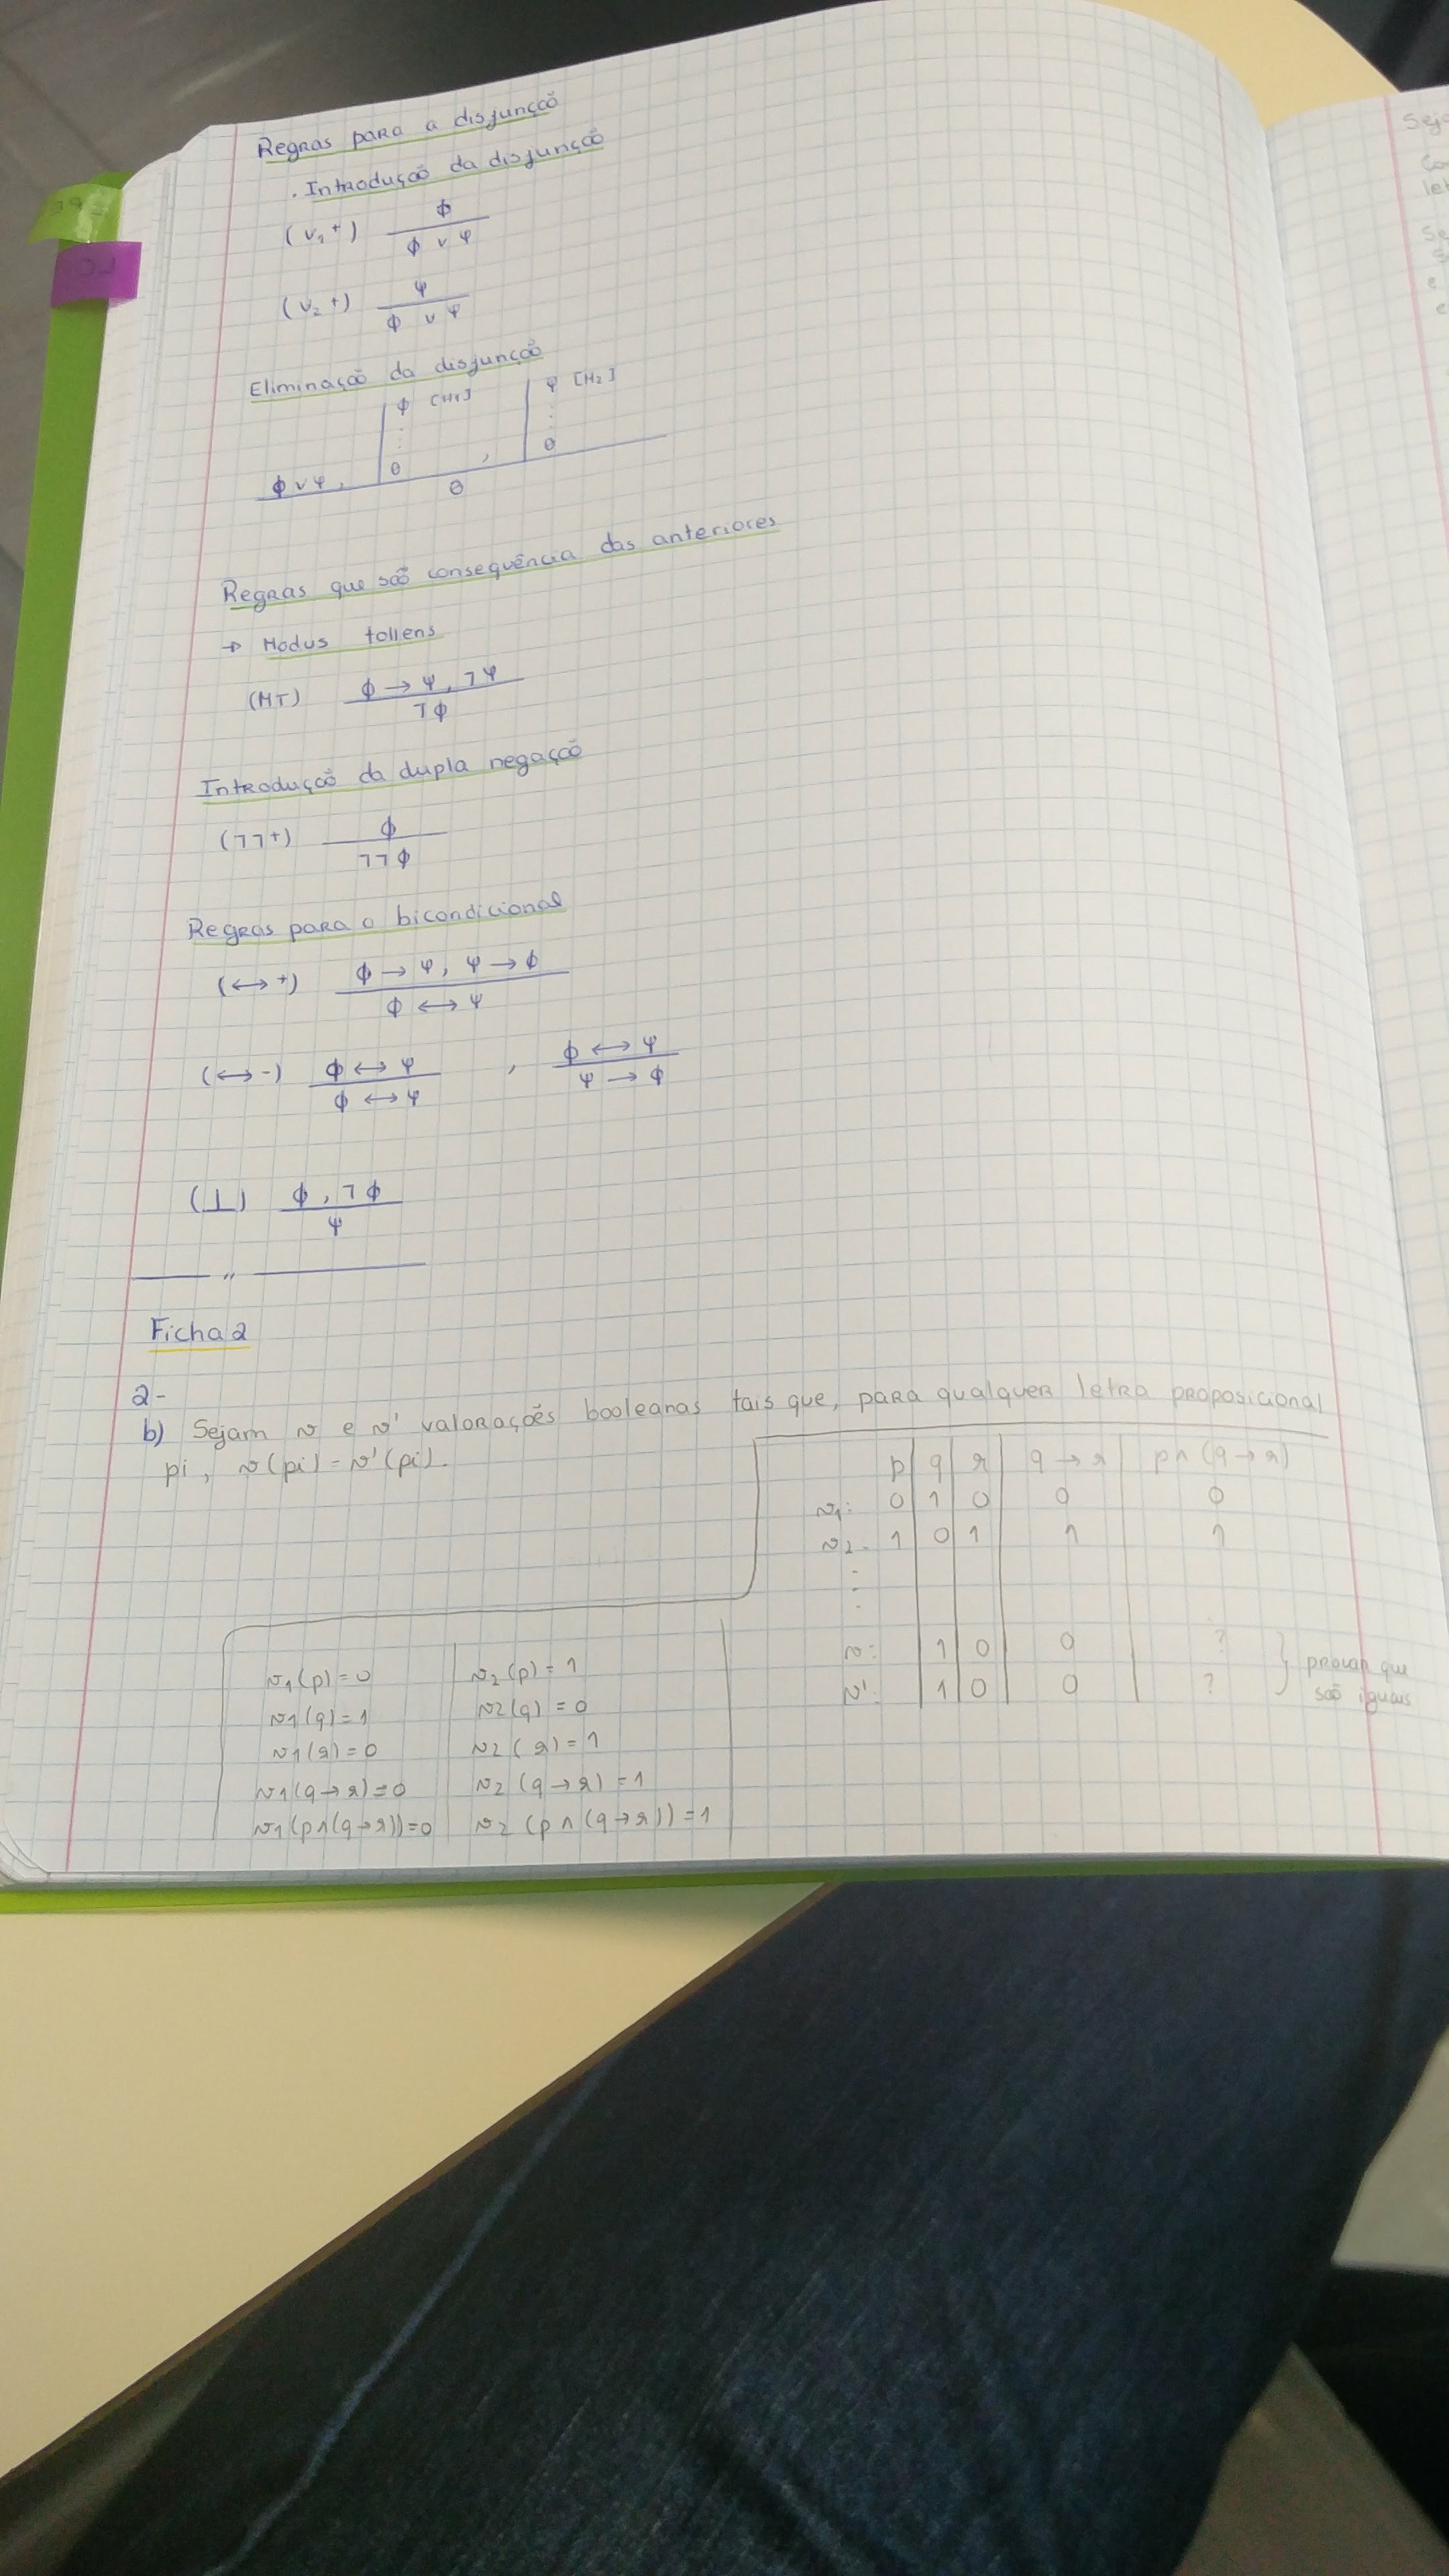 Regras para a disjunção
. Introdução da disjunção
(v₁+) ϕ / ϕ v ψ
(v₂+) ψ / ϕ v ψ
Eliminação da disjunção
ϕ v ψ, | ϕ [H1] ⋮ θ , | ψ [H2] ⋮ θ / θ
Regras que são consequência das anteriores
→ Modus tollens
(MT) ϕ → ψ, ¬ψ / ¬ϕ
Introdução da dupla negação
(¬¬+) ϕ / ¬¬ϕ
Regras para o bicondicional
(↔+) ϕ → ψ, ψ → ϕ / ϕ ↔ ψ
(↔-) ϕ ↔ ψ / ϕ ↔ ψ , ϕ ↔ ψ / ψ → ϕ
(⊥) ϕ, ¬ϕ / ψ
——— „ ———
Ficha 2
2-
b) Sejam v e v' valorações booleanas tais que, para qualquer letra proposicional
pi, v(pi) = v'(pi).
p | q | r | q → r | p ∧ (q → r)
v1: 0 | 1 | 0 | 0 | 0
v2: 1 | 0 | 1 | 1 | 1
⋮
v: | 1 | 0 | 0 | ?
v': | 1 | 0 | 0 | ?
} provar que
são iguais
v1(p) = 0 | v2(p) = 1
v1(q) = 1 | v2(q) = 0
v1(r) = 0 | v2(r) = 1
v1(q→r) = 0 | v2(q→r) = 1
v1(p∧(q→r)) = 0 | v2(p∧(q→r)) = 1